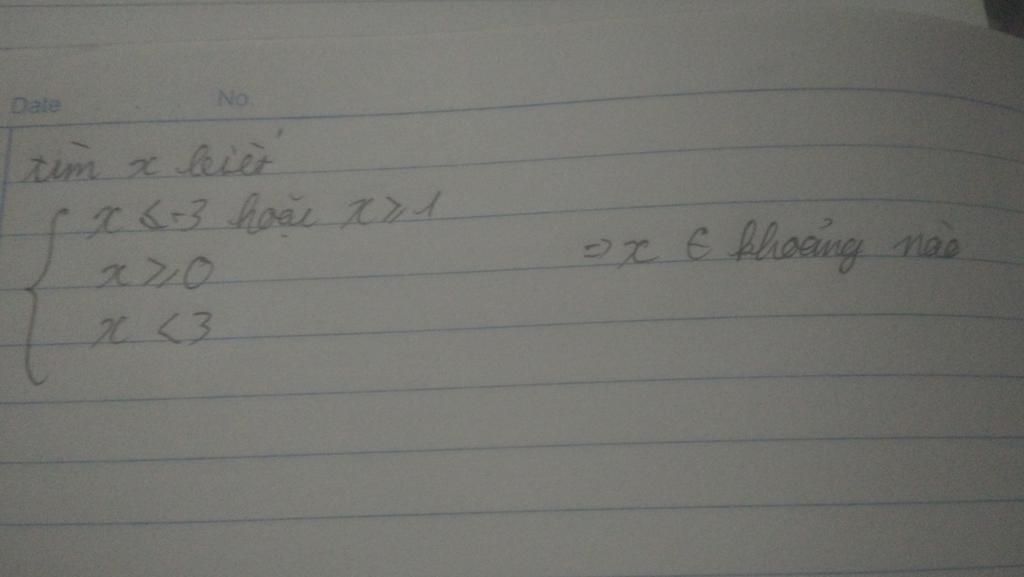 Date No
tìm x biết
x ≤ -3 hoặc x ≥ 1
x ≥ 0 ⇒ x ∈ khoảng nào
x < 3